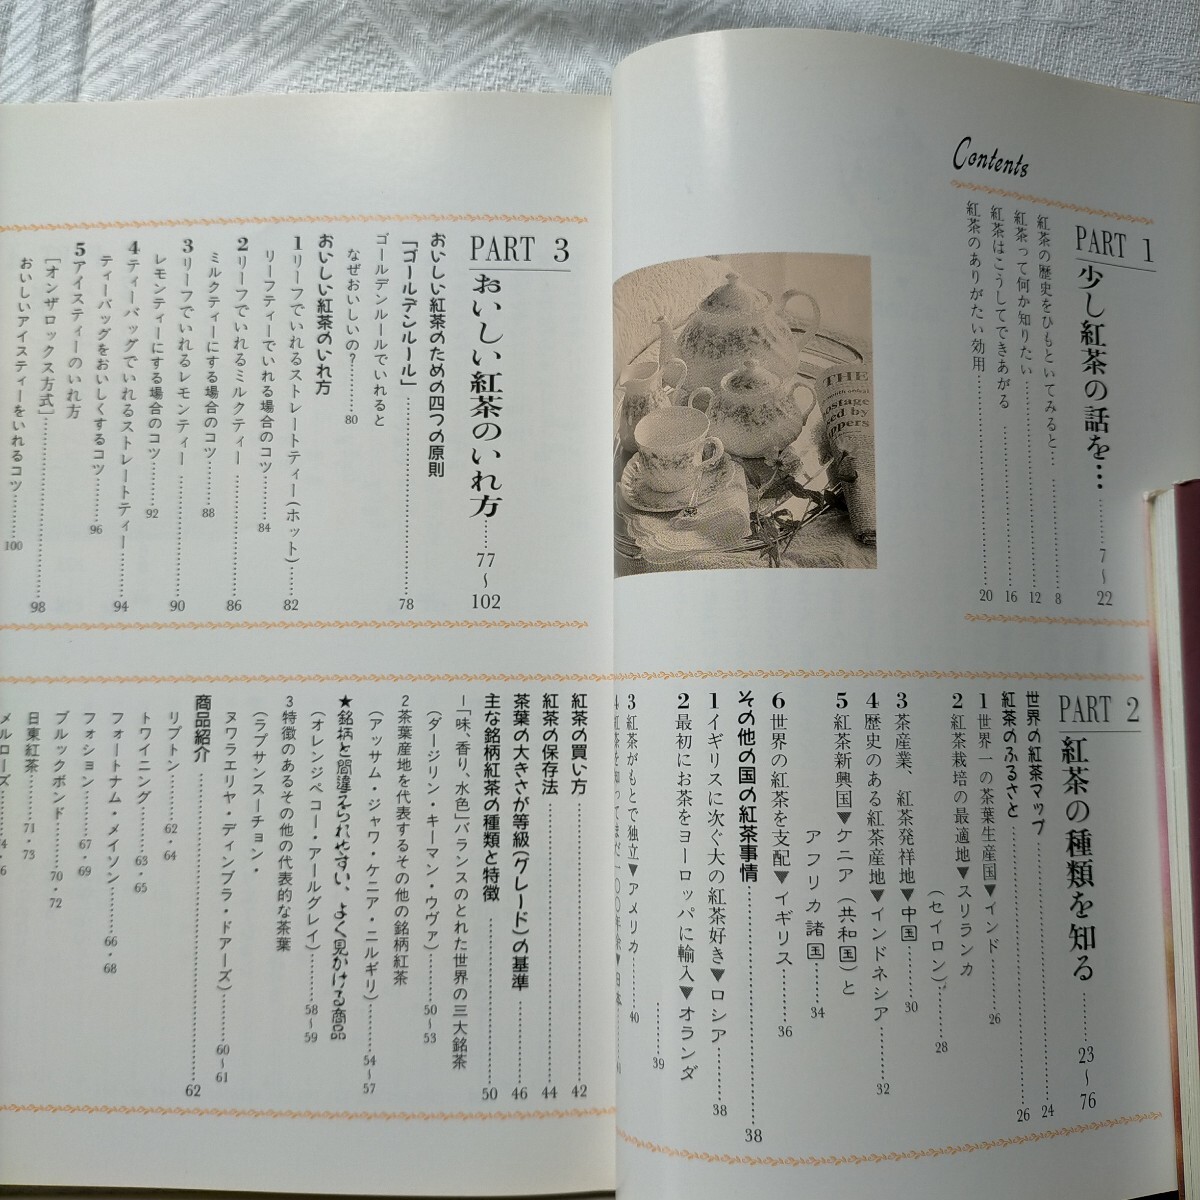 Contents
PART 1
少し紅茶の話を………7～22
紅茶の歴史をひもといてみると……8
紅茶って何か知りたい……12
紅茶はこうしてできあがる……16
紅茶のありがたい効用……20
THE
PART 2
紅茶の種類を知る……23～76
世界の紅茶マップ……24
紅茶のふるさと……26
1 世界一の茶葉生産国▼インド……26
2 紅茶栽培の最適地▼スリランカ
(セイロン)……28
3 茶産業、紅茶発祥地▼中国……30
4 歴史のある紅茶産地▼インドネシア……32
5 紅茶新興国▼ケニア(共和国)と
アフリカ諸国……34
6 世界の紅茶を支配▼イギリス……36
その他の国の紅茶事情……38
1 イギリスに次ぐ大の紅茶好き▼ロシア……38
2 最初にお茶をヨーロッパに輸入▼オランダ
……39
3 紅茶がもとで独立▼アメリカ……40
4 紅茶を知ってまだ一〇〇年余▼日本
紅茶の買い方……42
紅茶の保存法……44
茶葉の大きさが等級(グレード)の基準……46
主な銘柄紅茶の種類と特徴……50
1 「味、香り、水色」バランスのとれた世界の三大銘茶
(ダージリン・キーマン・ウヴァ)……50～53
2 茶葉産地を代表するその他の銘柄紅茶
(アッサム・ジャワ・ケニア・ニルギリ)……54～57
★銘柄と間違えられやすい、よく見かける商品
(オレンジペコー・アールグレイ)……58～59
3 特徴のあるその他の代表的な茶葉
(ラプサンスーチョン・
ヌワラエリヤ・ディンブラ・ドアーズ)……60～61
商品紹介……62
リプトン……62・64
トワイニング……63・65
フォートナム・メイソン……66・68
フォション……67・69
ブルックボンド……70・72
日東紅茶……71・73
メルローズ……
PART 3
おいしい紅茶のいれ方……77～102
おいしい紅茶のための四つの原則
「ゴールデンルール」……78
ゴールデンルールでいれると
なぜおいしいの?……80
おいしい紅茶のいれ方
1 リーフでいれるストレートティー(ホット)……82
リーフティーでいれる場合のコツ……84
2 リーフでいれるミルクティー……86
ミルクティーにする場合のコツ……88
3 リーフでいれるレモンティー……90
レモンティーにする場合のコツ……92
4 ティーバッグでいれるストレートティー……94
ティーバッグをおいしくするコツ……96
5 アイスティーのいれ方
[オンザロックス方式]……98
おいしいアイスティーをいれるコツ……100